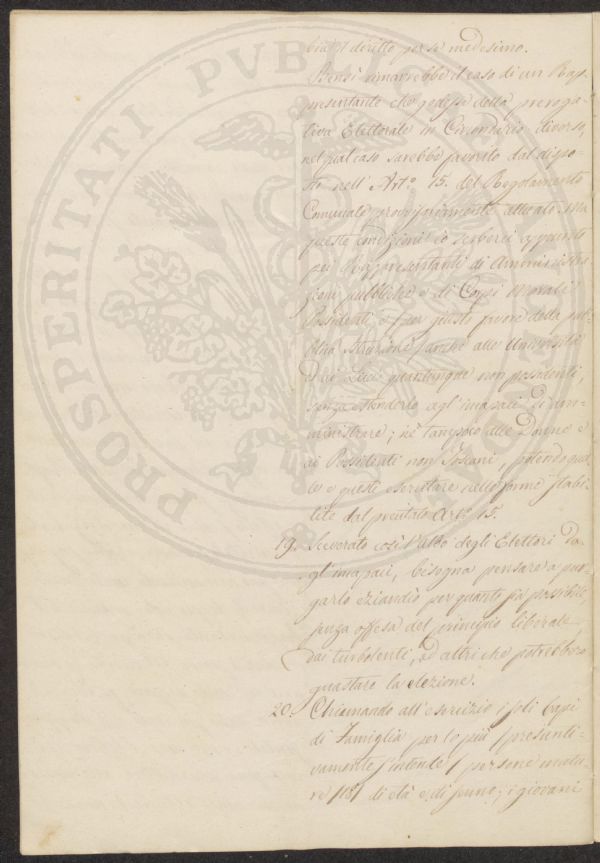 bia il diritto per se medesimo.
Bensì rimarrebbe il caso di un Rap-
presentante che godesse della preroga-
tiva Elettorale in Circondario diverso,
nel qual caso sarebbe favorito dal dispo-
sto nell'Art.º 15. del Regolamento
Comunale provvisoriamente attivato. Ma
queste condizioni io serberei appunto
pei Rappresentanti di Amministra
zioni pubbliche e di Corpi Morali
Possidenti, e per giusto favore della pub-
blica Istruzione anche alle Università
e ai Licei quantunque non possidenti,
senza estenderlo agl'incapaci di am-
ministrare; nè tampoco alle Donne e
ai Possidenti non Toscani, potendo quel-
le e questi esercitare nelle forme stabi-
lite dal precitato Art.º 15.
19. Sceverato così l'albo degli Elettori da-
gl'incapaci, bisogna pensare a pur-
garlo eziandio per quanto sia possibile,
senza offesa del principio liberale,
dai turbolenti, ed altri che potrebbero
guastare la elezione.
20. Chiamando all'esercizio i soli Capi
di Famiglia per lo più (presunti-
vamente s'intende) persone matu-
re di età e di senno; i giovani
PROSPERITATI PVBLICAE